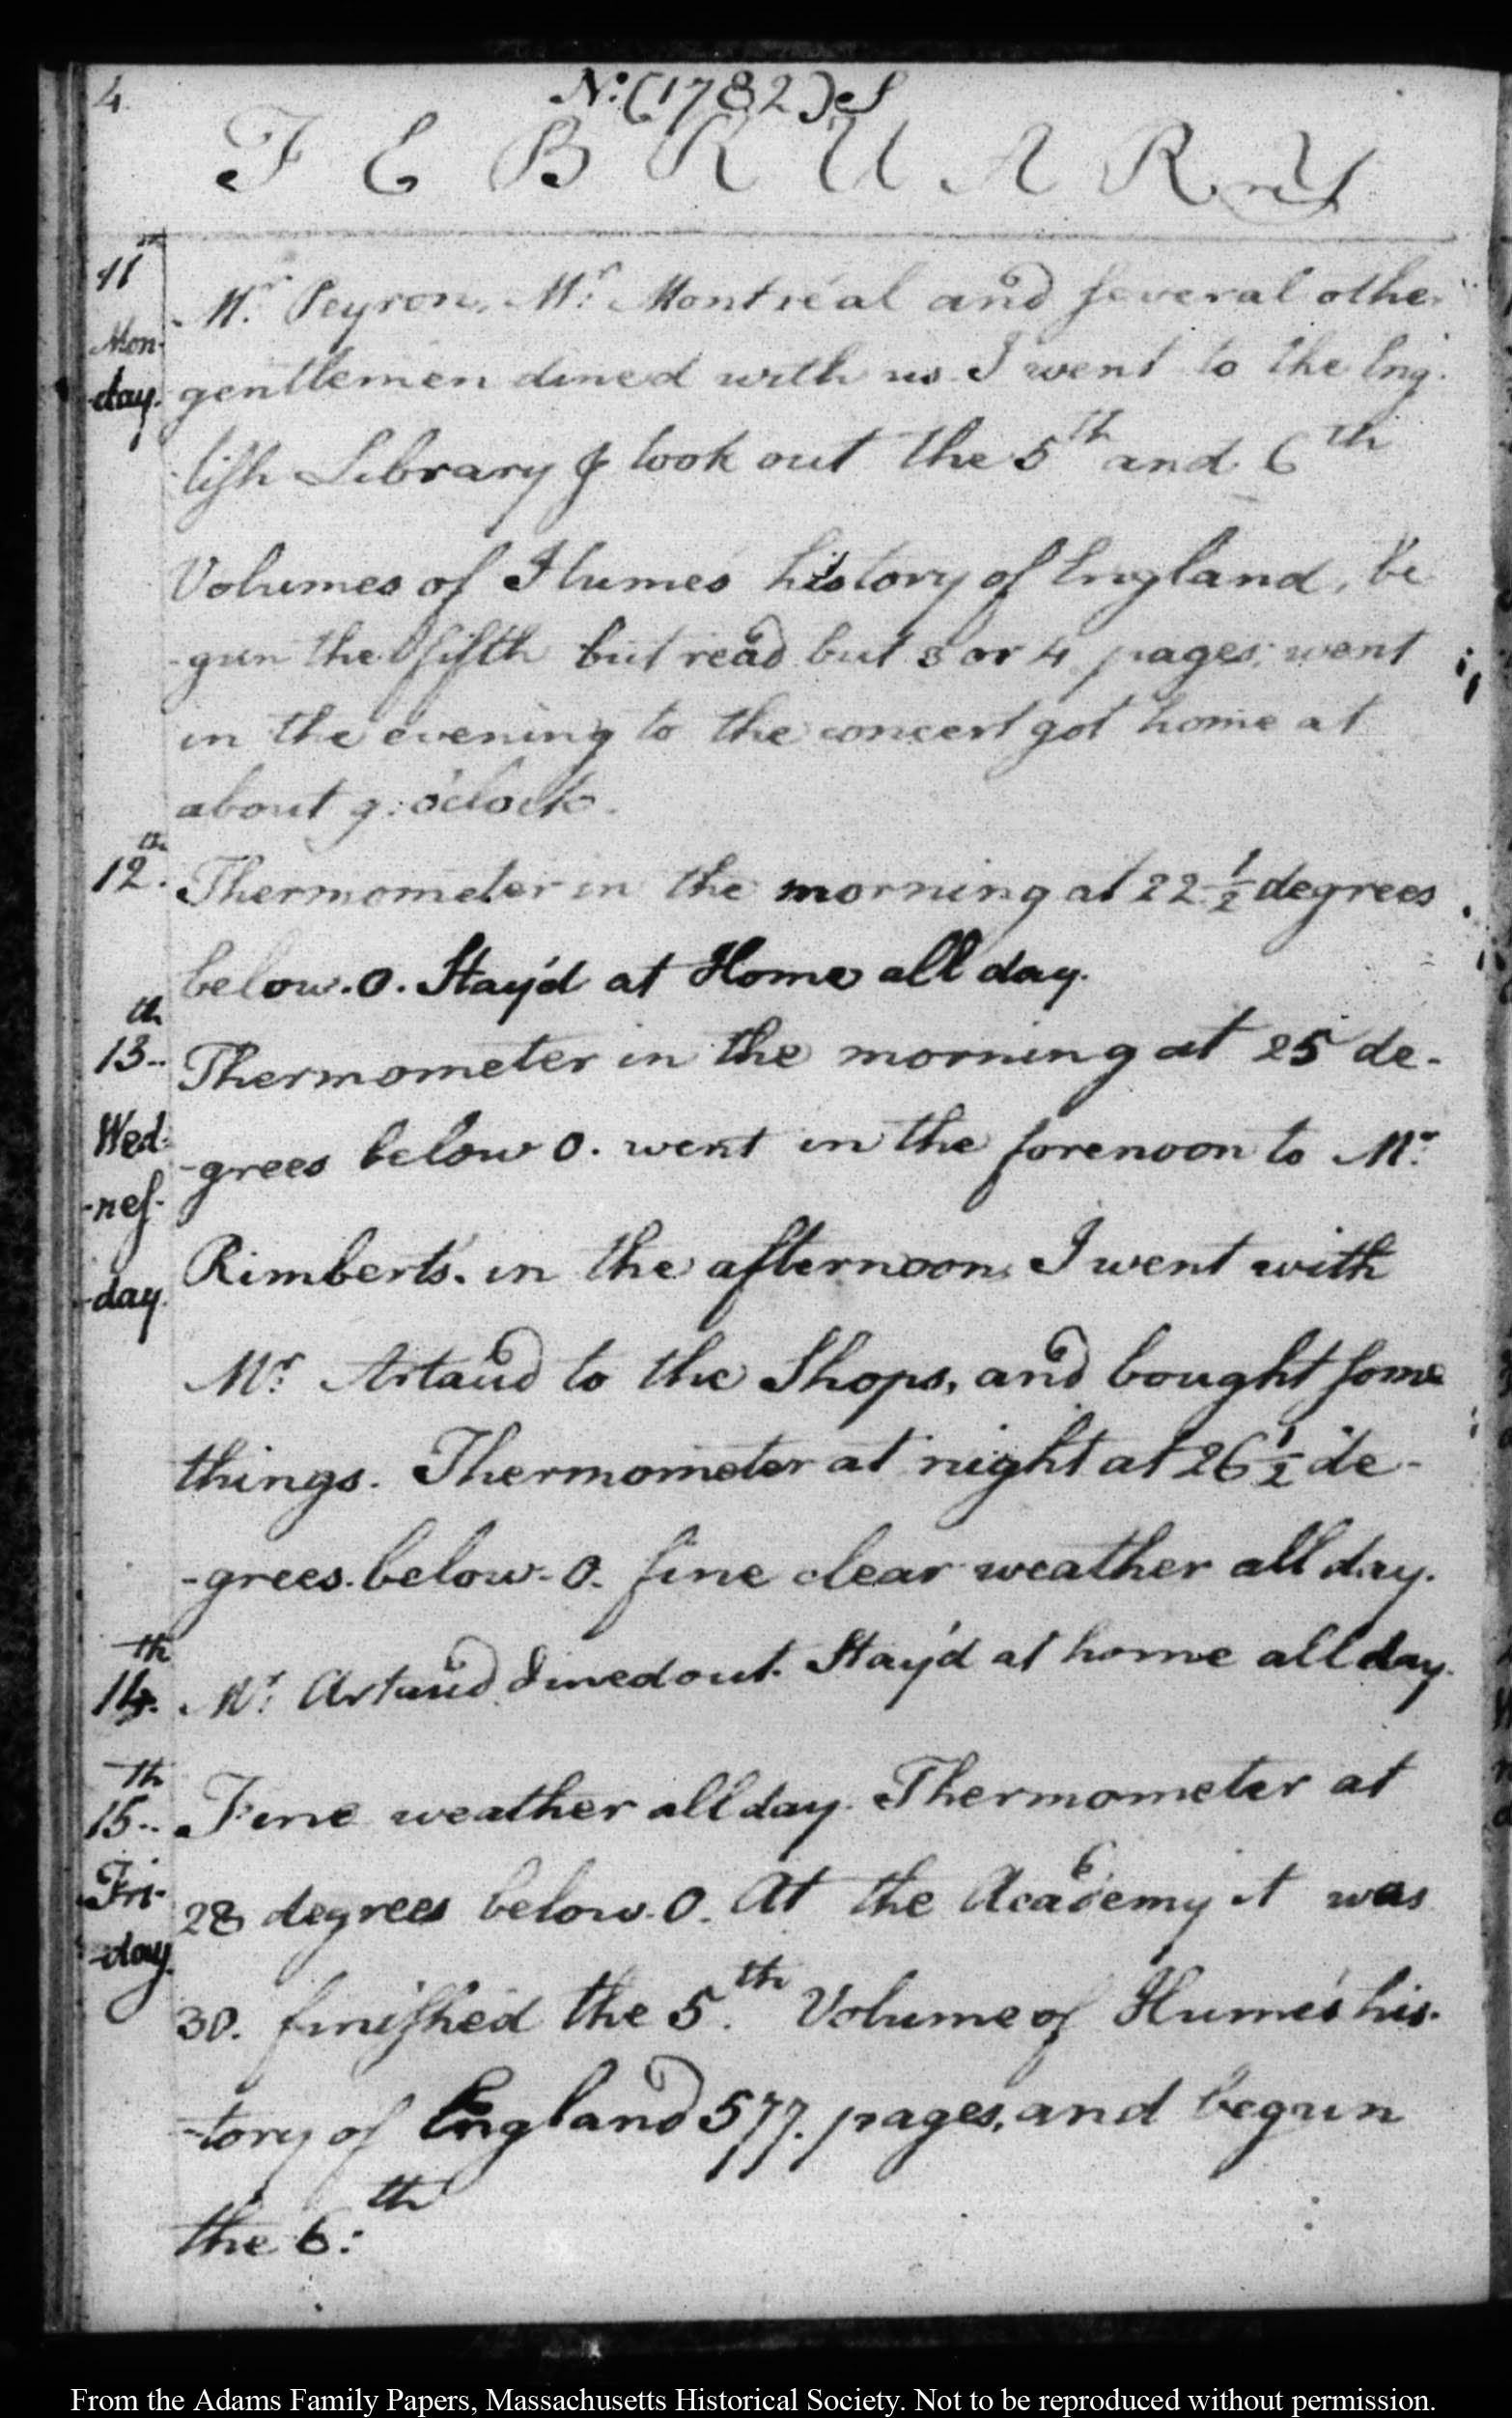 4
N:o (1782) S
FEBRUARY
11th
Mon-
day.
Mr. Peyron, Mr: Montréal and several other
gentlemen dined with us I went to the Eng-
lish Library & took out the 5th and 6th
Volumes of Hume's history of England, be
-gun the fifth but read but 3 or 4 pages; went
in the evening to the concert got home at
about 9: o'clock.
12.th
Thermometer in the morning at 22 1/2 degrees
below. 0. Stay'd at Home all day.
13..th
Wed-
-nes-
-day.
Thermometer in the morning at 25 de-
-grees below 0. went in the forenoon to Mr:
Rimbert's. in the afternoon I went with
Mr: Artaud to the Shops, and bought some
things. Thermometer at night at 26 1/2 de-
-grees. below. 0. fine clear weather all day.
14.th
Mr: Artaud dined out. Stay'd at home all day.
15..th
Fri-
-day.
Fine weather all day. Thermometer at
28 degrees below. 0. At the Academy it was
30. finished the 5.th Volume of Hume's his-
-tory of England 577. pages, and begun
the 6:th
From the Adams Family Papers, Massachusetts Historical Society. Not to be reproduced without permission.